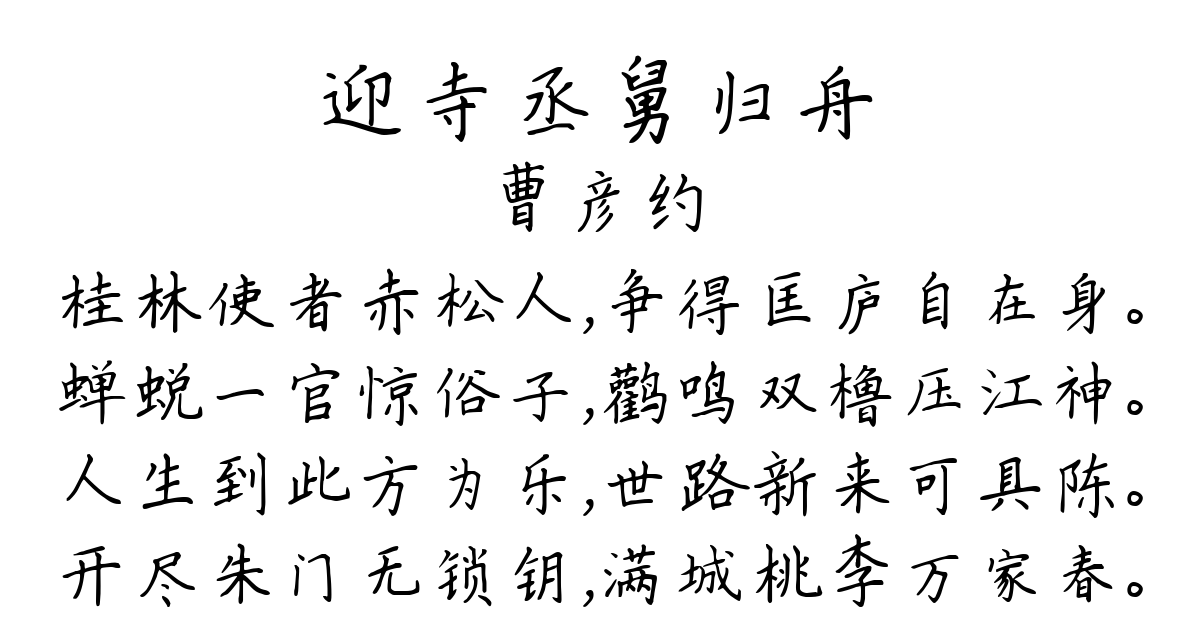 迎寺丞舅归舟
曹彦约
桂林使者赤松人,争得匡庐自在身。
蝉蜕一官惊俗子,鹳鸣双橹压江神。
人生到此方为乐,世路新来可具陈。
开尽朱门无锁钥,满城桃李万家春。